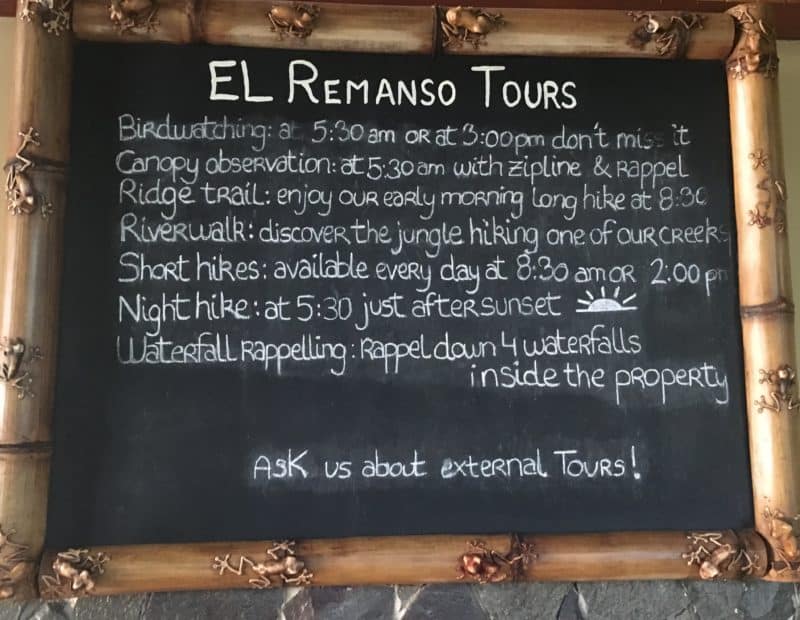 EL REMANSO TOURS
Birdwatching: at 5:30 am OR at 3:00pm don't miss it
Canopy observation: at 5:30 am with zipline & Rappel
Ridge trail: enjoy our early morning long hike at 8:30
Riverwalk: discover the jungle hiking one of our creeks
Short hikes: available every day at 8:30 am OR 2:00 pm
Night hike: at 5:30 just after sunset
Waterfall Rappelling: Rappel down 4 waterfalls
inside the property
Ask us about external Tours!